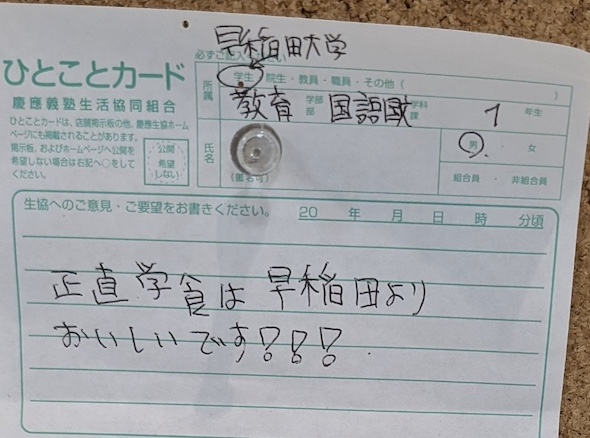 早稲田大学
必ずご記入ください
ひとことカード
慶應義塾生活協同組合
ひとことカードは、店頭掲示板の他、慶應生協ホーム
ページにも掲載されることがあります。
掲示板、およびホームページへ公開を
希望しない場合は右記へ○をして
ください。
公開
希望
しない
所属
学生・院生・教員・職員・その他（ ）
教育 学部 部 国語国文 学科 課 1 年生
氏名
(匿名可)
男・女
組合員・非組合員
生協へのご意見・ご要望をお書きください。 20 年 月 日 時 分頃
正直学食は早稲田より
おいしいです!!!